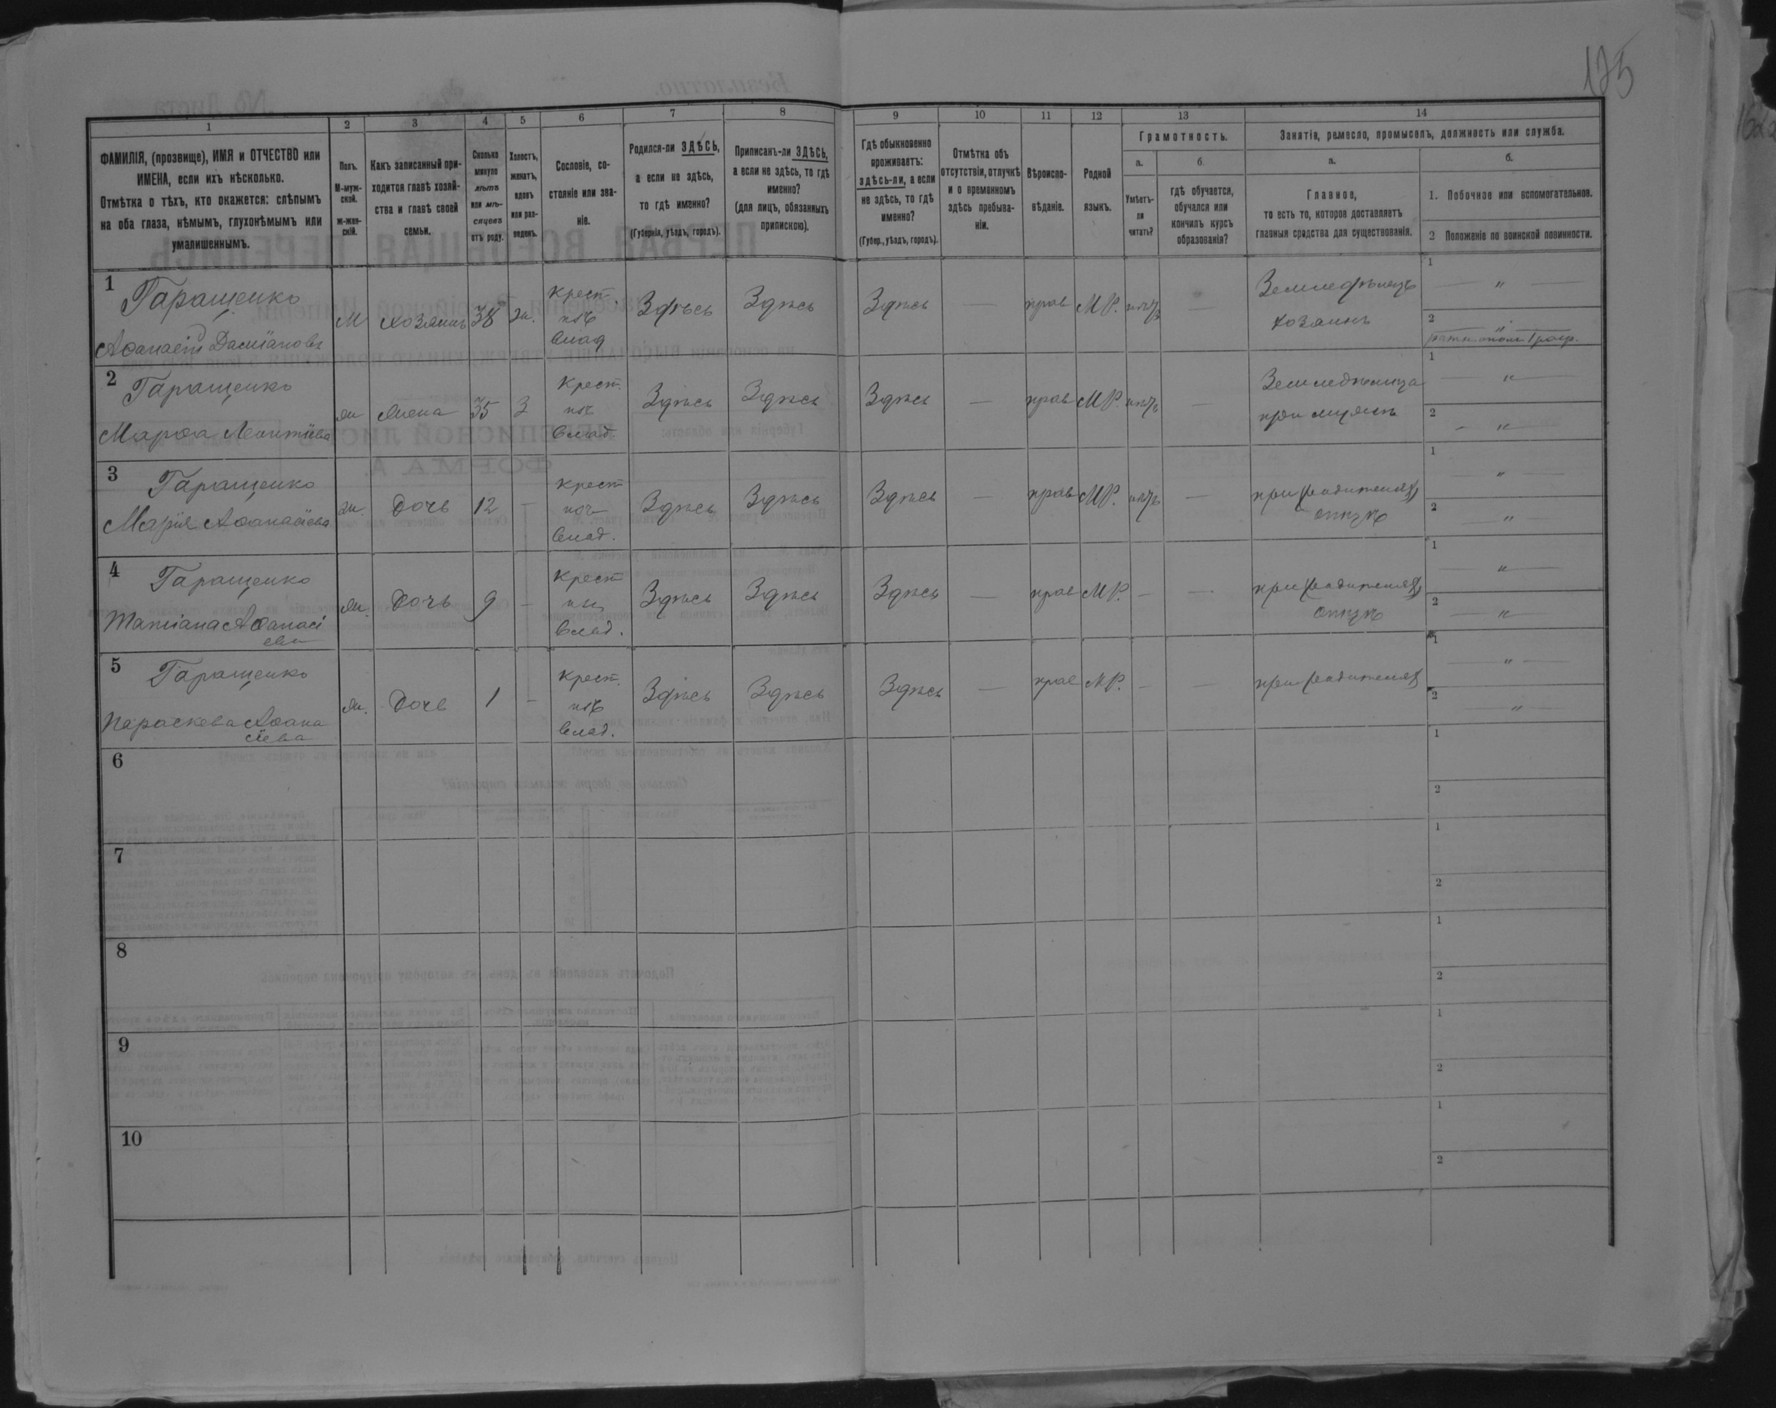 175
1
2
3
4
5
6
7
8
9
10
11
12
13
14
ФАМИЛІЯ, (прозвище), ИМЯ и ОТЧЕСТВО или
ИМЕНА, если ихъ нѣсколько.
Отмѣтка о тѣхъ, кто окажется: слѣпымъ
на оба глаза, нѣмымъ, глухонѣмымъ или
умалишеннымъ.
Полъ.
М-муж-
ской.
ж-жен-
скій.
Какъ записанный при-
ходится главѣ хозяй-
ства и главѣ своей
семьи.
Сколько
минуло
лѣтъ
или мѣ-
сяцевъ
отъ роду.
Холостъ,
женатъ,
вдовъ
или раз-
веденъ.
Сословіе, со-
стояніе или зва-
ніе.
Родился-ли ЗДѢСЬ,
а если не здѣсь,
то гдѣ именно?
(Губернія, уѣздъ, городъ).
Приписанъ-ли ЗДѢСЬ,
а если не здѣсь, то гдѣ
именно?
(для лицъ, обязанныхъ
припискою).
Гдѣ обыкновенно
проживаетъ:
здѣсь-ли, а если
не здѣсь, то гдѣ
именно?
(Губер., уѣздъ, городъ).
Отмѣтка объ
отсутствіи, отлучкѣ
и о временномъ
здѣсь пребыва-
ніи.
Вѣроиспо-
вѣданіе.
Родной
языкъ.
Грамотность.
а.
б.
Умѣетъ-
ли
читать?
гдѣ обучается,
обучался или
кончилъ курсъ
образованія?
Занятія, ремесло, промыселъ, должность или служба.
а.
б.
Главное,
то есть то, которое доставляетъ
главныя средства для существованія.
1. Побочное или вспомогательное.
2 Положеніе по воинской повинности.
1
Гаращенко
Афанасій Даміановъ
М
хозяинъ
38
ж.
Крест.
Влад
Здѣсь
Здѣсь
Здѣсь
—
прав
М.Р.
—
Земледѣлецъ
хозяинъ
1 — " —
2 — " —
2
Гаращенко
Марфа Леонтіева
ж
жена
35
З
Крест.
Влад.
Здѣсь
Здѣсь
Здѣсь
—
прав
М.Р.
—
Земледѣлица
при мужѣ
1 — " —
2 — " —
3
Гаращенко
Марія Афанасіева
ж
дочь
12
—
Крест
Влад.
Здѣсь
Здѣсь
Здѣсь
—
прав
М.Р.
—
при родителяхъ
отцѣ
1 — " —
2 — " —
4
Гаращенко
Татіана Афанасі
ева
ж.
дочь
9
—
Крест
Влад.
Здѣсь
Здѣсь
Здѣсь
—
прав
М.Р.
—
—
при родителяхъ
отцѣ
1 — " —
2 — " —
5
Гаращенко
Параскева Афана
сіева
ж.
дочь
1
—
Крест.
Влад.
Здѣсь
Здѣсь
Здѣсь
—
прав
М.Р.
—
—
при родителяхъ
1 — " —
2 — " —
6
1
2
7
1
2
8
1
2
9
1
2
10
1
2